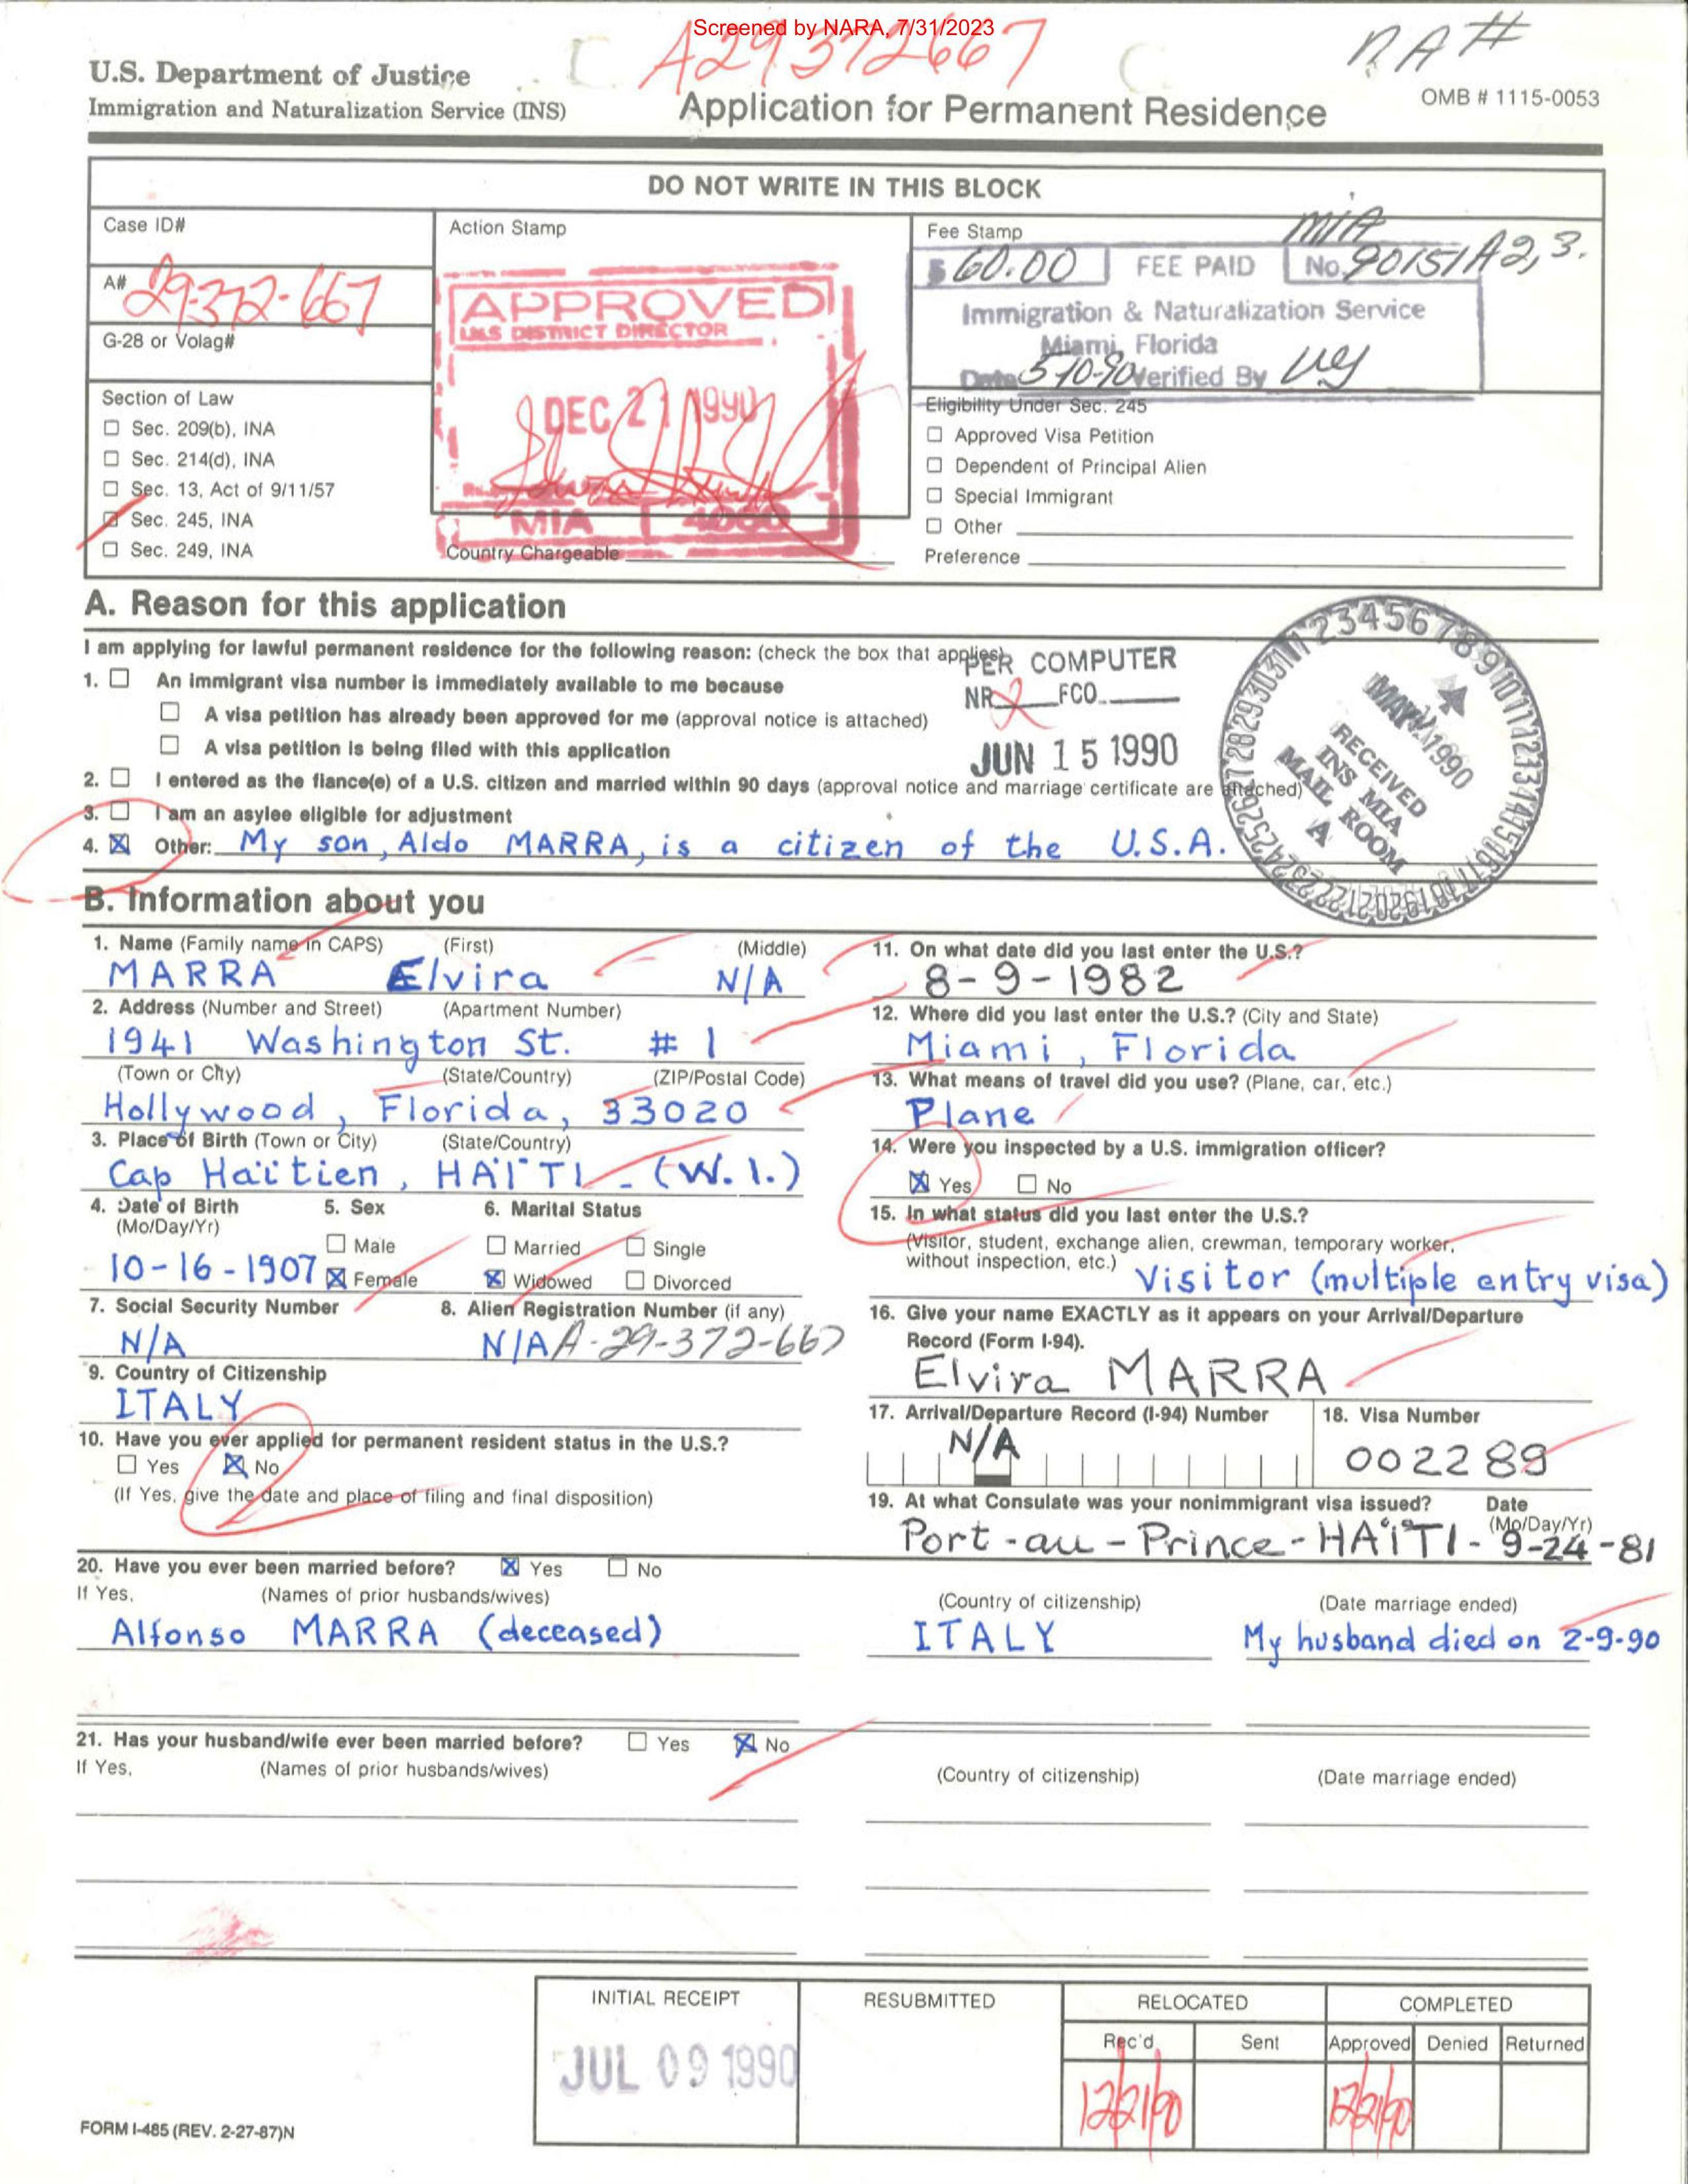 Screened by NARA, 7/31/2023
A29372667
NA#
U.S. Department of Justice
Immigration and Naturalization Service (INS)
Application for Permanent Residence
OMB # 1115-0053
DO NOT WRITE IN THIS BLOCK
Case ID#
A# 29-372-667
G-28 or Volag#
Section of Law
☐ Sec. 209(b), INA
☐ Sec. 214(d), INA
☐ Sec. 13, Act of 9/11/57
☑ Sec. 245, INA
☐ Sec. 249, INA
Action Stamp
APPROVED
U.S DISTRICT DIRECTOR
DEC 21 1990
MIA
Country Chargeable
Fee Stamp
MIA
$ 60.00 FEE PAID No. 90151A2,3.
Immigration & Naturalization Service
Miami, Florida
Date 5-10-90 Verified By
Eligibility Under Sec. 245
☐ Approved Visa Petition
☐ Dependent of Principal Alien
☐ Special Immigrant
☐ Other
Preference
A. Reason for this application
I am applying for lawful permanent residence for the following reason: (check the box that applies)
PER COMPUTER
NR FCO
JUN 15 1990
1. ☐ An immigrant visa number is immediately available to me because
☐ A visa petition has already been approved for me (approval notice is attached)
☐ A visa petition is being filed with this application
2. ☐ I entered as the fiance(e) of a U.S. citizen and married within 90 days (approval notice and marriage certificate are attached)
3. ☐ I am an asylee eligible for adjustment
4. ☒ Other: My son, Aldo MARRA, is a citizen of the U.S.A.
MAY 1990
RECEIVED
INS MIA
MAIL ROOM
A
B. Information about you
1. Name (Family name in CAPS) (First) (Middle)
MARRA Elvira N/A
2. Address (Number and Street) (Apartment Number)
1941 Washington St. # 1
(Town or City) (State/Country) (ZIP/Postal Code)
Hollywood, Florida, 33020
3. Place of Birth (Town or City) (State/Country)
Cap Haïtien, HAÏTI - (W.I.)
4. Date of Birth (Mo/Day/Yr)
10-16-1907
5. Sex
☐ Male
☒ Female
6. Marital Status
☐ Married ☐ Single
☒ Widowed ☐ Divorced
7. Social Security Number
N/A
8. Alien Registration Number (if any)
N/A A-29-372-667
9. Country of Citizenship
ITALY
10. Have you ever applied for permanent resident status in the U.S.?
☐ Yes ☒ No
(If Yes, give the date and place of filing and final disposition)
11. On what date did you last enter the U.S.?
8-9-1982
12. Where did you last enter the U.S.? (City and State)
Miami, Florida
13. What means of travel did you use? (Plane, car, etc.)
Plane
14. Were you inspected by a U.S. immigration officer?
☒ Yes ☐ No
15. In what status did you last enter the U.S.?
(Visitor, student, exchange alien, crewman, temporary worker,
without inspection, etc.) Visitor (multiple entry visa)
16. Give your name EXACTLY as it appears on your Arrival/Departure
Record (Form I-94).
Elvira MARRA
17. Arrival/Departure Record (I-94) Number
N/A
18. Visa Number
002289
19. At what Consulate was your nonimmigrant visa issued? Date (Mo/Day/Yr)
Port-au-Prince-HAÏTI- 9-24-81
20. Have you ever been married before? ☒ Yes ☐ No
If Yes, (Names of prior husbands/wives) (Country of citizenship) (Date marriage ended)
Alfonso MARRA (deceased) ITALY My husband died on 2-9-90
21. Has your husband/wife ever been married before? ☐ Yes ☒ No
If Yes, (Names of prior husbands/wives) (Country of citizenship) (Date marriage ended)
INITIAL RECEIPT
JUL 09 1990
RESUBMITTED
RELOCATED
Rec'd Sent
12/21/90
COMPLETED
Approved Denied Returned
12/21/90
FORM I-485 (REV. 2-27-87)N